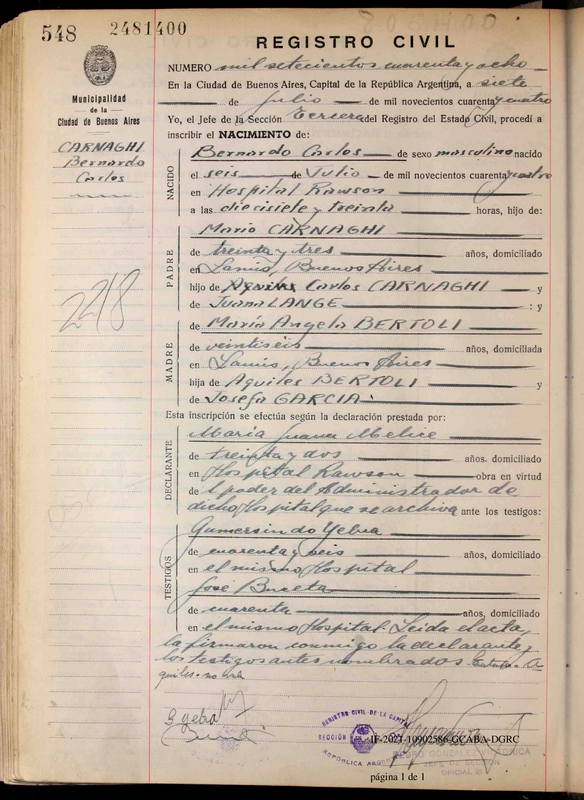 548
2481400
REGISTRO CIVIL
Municipalidad
de la
Ciudad de Buenos Aires
CARNAGHI
Bernardo
Carlos
2218
NUMERO mil setecientos cuarenta y ocho
En la Ciudad de Buenos Aires, Capital de la República Argentina, a siete
de Julio de mil novecientos cuarenta y cuatro
Yo, el Jefe de la Sección Tercera del Registro del Estado Civil, procedí a
inscribir el NACIMIENTO de:
NACIDO
Bernardo Carlos de sexo masculino nacido
el seis de Julio de mil novecientos cuarenta y cuatro
en Hospital Rawson
a las diecisiete y treinta horas, hijo de:
PADRE
Mario CARNAGHI
de treinta y tres años, domiciliado
en Lanús, Buenos Aires
hijo de Aquiles Carlos CARNAGHI y
de Juana LANGE : y
MADRE
de María Angela BERTOLI
de veintiséis años, domiciliada
en Lanús, Buenos Aires
hija de Aquiles BERTOLI y
de Josefa GARCIA
Esta inscripción se efectúa según la declaración prestada por:
DECLARANTE
María Juana
de treinta y dos años. domiciliado
en Hospital Rawson obra en virtud
de l poder del Administrador de
dicho Hospital que se archiva ante los testigos:
TESTIGOS
Gumersindo Yebra
de cuarenta y seis años, domiciliado
en el mismo Hospital
José Buceta
de cuarenta años, domiciliado
en el mismo Hospital. Leida el acta,
la firmaron conmigo la declarante y
los testigos antes nombrados. Testado: A
quiles. no vale
G Yebra
REGISTRO CIVIL DE LA CAPITAL
SECCIÓN
REPÚBLICA ARGENTINA
IF-2021-10902586-GCABA-DGRC
PEDRO GONZALEZ
JEFE DE SECCIÓN
OFICIAL
página 1 de 1